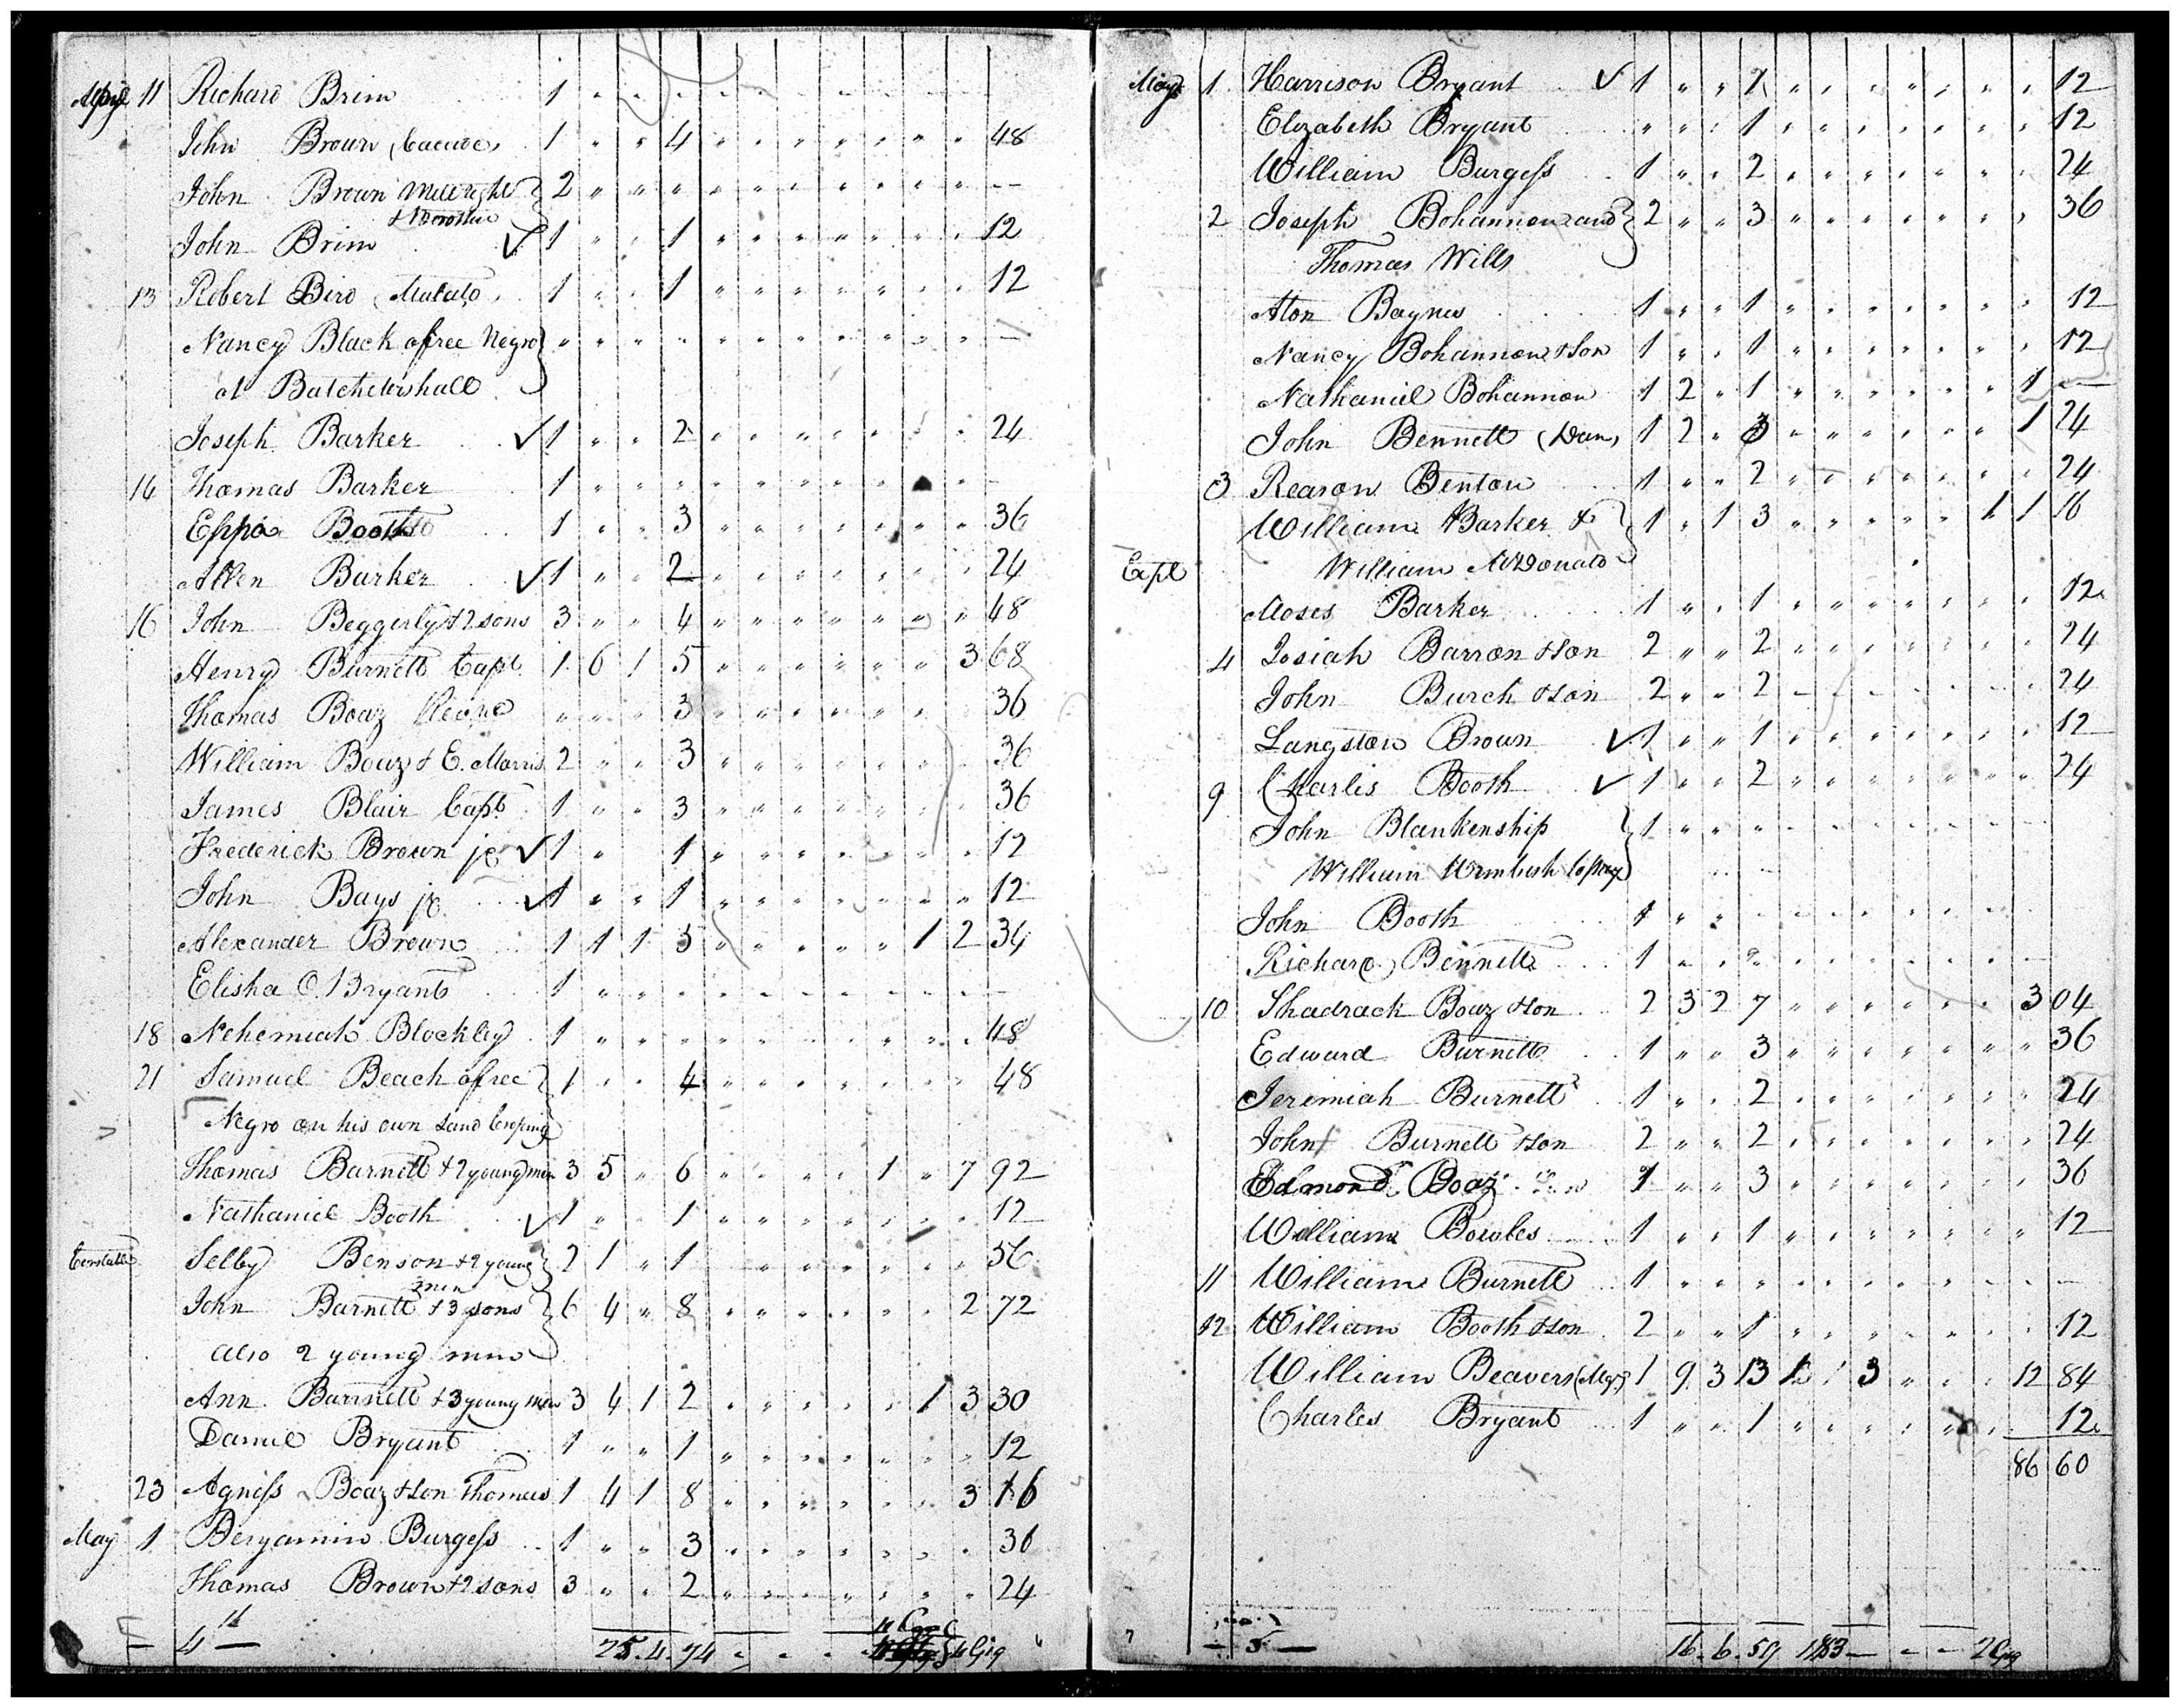 April 11 Richard Brim 1
John Brown 1 4 48
John Brown Millwright 2
John Brim ✓ 1 1 12
13 Robert Bird Mulato 1 1 12
Nancy Black a free Negro
at Batchelors hall
Joseph Barker ✓ 1 2 24
14 Thomas Barker 1
Eppa Booth 1 3 36
Allen Barker ✓ 1 2 24
16 John Beggerly & 2 sons 3 4 48
Henry Burnett Capt. 1 6 1 5 3 68
Thomas Boaz 3 36
William Boaz & E. Morris 2 3 36
James Blair Capt. 1 3 36
Frederick Brown jr ✓ 1 1 12
John Bays jr ✓ 1 1 12
Alexander Brown 1 1 1 5 1 2 34
Elisha C. Bryant 1
18 Nehemiah Blockley 1 48
21 Samuel Beach a free 1 4 48
Negro on his own Land Croping
Thomas Barnett & 2 young men 3 5 6 1 7 92
Nathaniel Booth ✓ 1 1 12
Constable Selby Benson & 2 young 2 1 1 56
men
John Barnett & 3 sons 6 4 8 2 72
also 2 young men
Ann Barnett & 3 young men 3 4 1 2 1 3 30
Daniel Bryant 1 1 12
23 Agness Boaz & son Thomas 1 4 1 8 3 16
May 1 Benjamin Burgess 1 3 36
Thomas Brown & 2 sons 3 2 24
4 25. 4. 74 4 Gig
May 1 Harrison Bryant ✓ 1 1 12
Elizabeth Bryant 1 12
William Burgess 1 2 24
2 Joseph Bohannon and 2 3 36
Thomas Wills
Aton Baynes 1 1 12
Nancy Bohannon & son 1 1 12
Nathaniel Bohannon 1 2 1 1
John Bennett (Dan) 1 2 3 1 24
3 Reason Benton 1 2 24
William Barker & 1 1 3 1 1 16
William McDonald
Moses Barker 1 1 12
4 Josiah Barron & son 2 2 24
John Burch & son 2 2 24
Langston Brown ✓ 1 1 12
9 Charles Booth ✓ 1 2 24
John Blankenship 1
William Wimbush to pay
John Booth 1
Richard Bennett 1
10 Shadrack Boaz & son 2 3 2 7 3 04
Edward Burnett 1 3 36
Jeremiah Burnett 1 2 24
John Burnett & son 2 2 24
Edmond Boaz 1 3 36
William Bowles 1 1 12
11 William Burnett 1
12 William Booth & son 2 1 12
William Beavers (Majr) 1 9 3 13 1 3 12 84
Charles Bryant 1 1 12
86 60
5 16. 6. 59 2 Gig